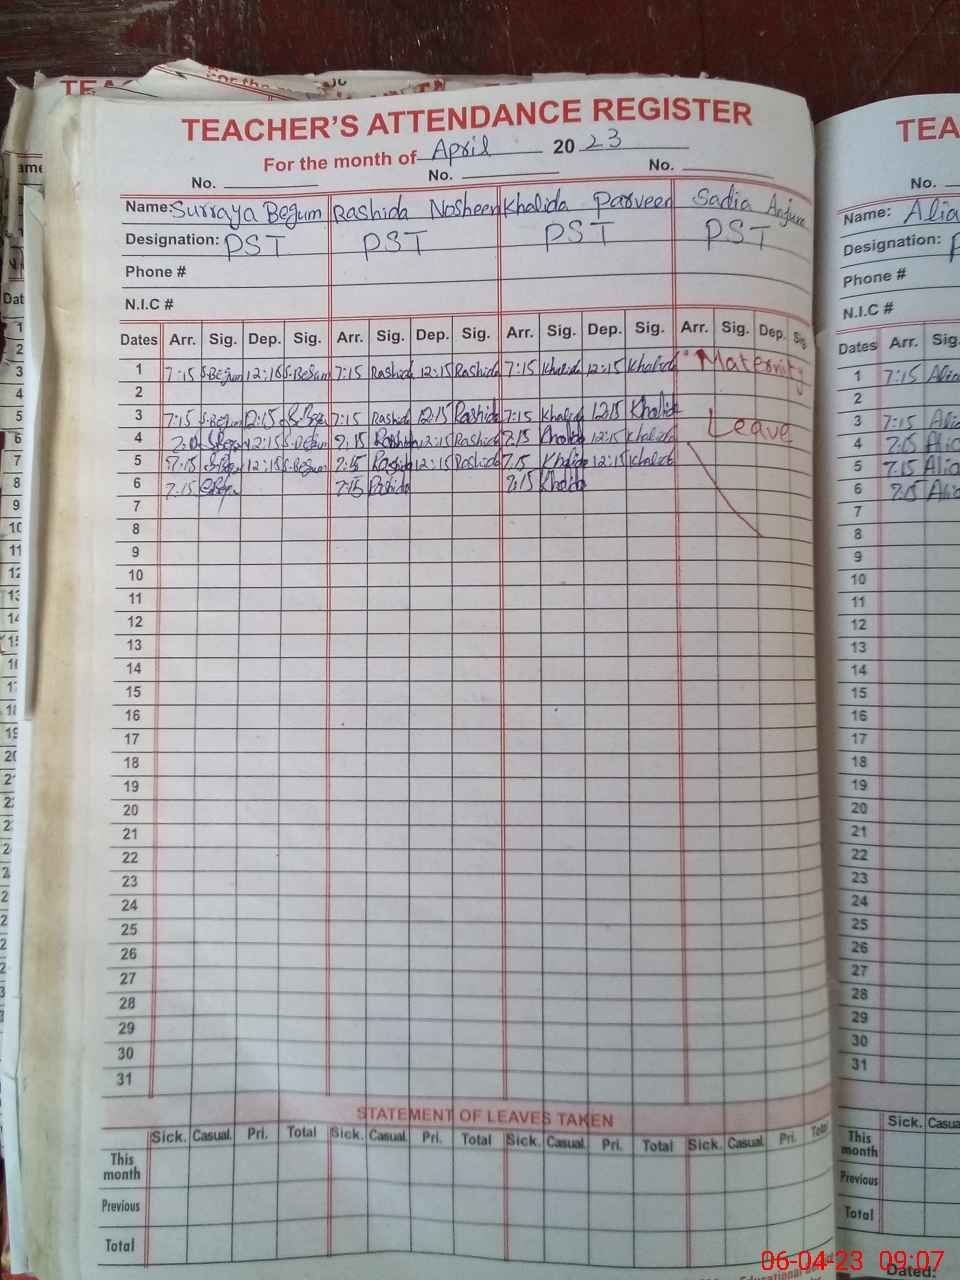 TEACHER'S ATTENDANCE REGISTER
For the month of April 20 23
No. No. No.
Name: Surraya Begum Rashida Nosheen Khalida Parveen Sadia Anjum
Designation: PST PST PST PST
Phone #
N.I.C #
Dates Arr. Sig. Dep. Sig. Arr. Sig. Dep. Sig. Arr. Sig. Dep. Sig. Arr. Sig. Dep. Sig.
1 7:15 S.Begum 12:15 S.Begum 7:15 Rashida 12:15 Rashida 7:15 Khalida 12:15 Khalida Maternity
2
3 7:15 S.Begum 12:15 S.Beg 7:15 Rashida 12:15 Rashida 7:15 Khalida 12:15 Khalida Leave
4 S.Begum 12:15 S.Begum 7:15 Rashida 12:15 Rashida 7:15 Khalida 12:15 Khalida
5 7:15 S.Begum 12:15 S.Begum 7:15 Rashida 12:15 Rashida 7:15 Khalida 12:15 Khalida
6 7:15 7:15 Rashida 7:15 Khalida
7
8
9
10
11
12
13
14
15
16
17
18
19
20
21
22
23
24
25
26
27
28
29
30
31
STATEMENT OF LEAVES TAKEN
Sick. Casual. Pri. Total Sick. Casual. Pri. Total Sick. Casual. Pri. Total Sick. Casual. Pri. Total
This month
Previous
Total
TEA
No.
Name: Alia
Designation: P
Phone #
N.I.C #
Dates Arr. Sig.
1 7:15 Alia
2
3 7:15 Alia
4 7:15 Alia
5 7:15 Alia
6 7:15 Alia
7
8
9
10
11
12
13
14
15
16
17
18
19
20
21
22
23
24
25
26
27
28
29
30
31
Sick. Casua
This month
Previous
Total
Dated:
06-04-23 09:07